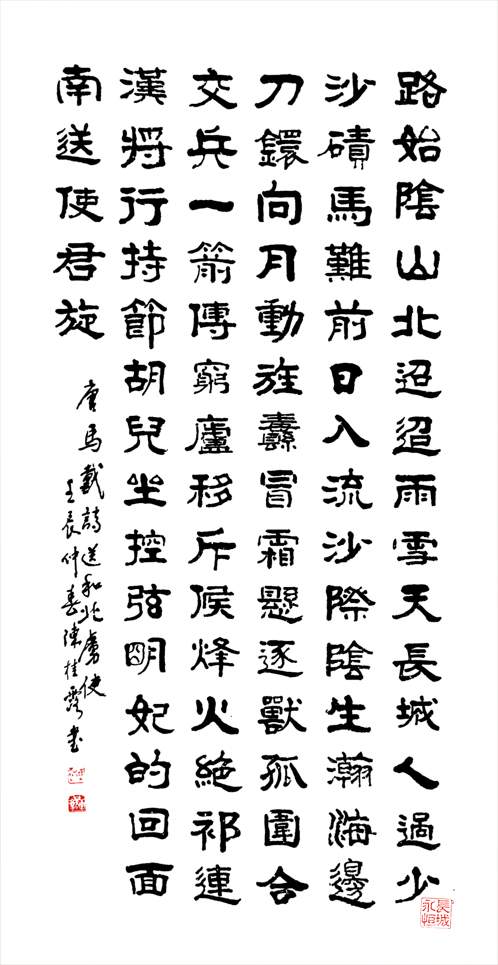 路始陰山北迢迢雨雪天長城人過少
沙磧馬難前日入流沙際陰生瀚海邊
刀鐶向月動旌纛冒霜懸逐獸孤圍合
交兵一箭傳窮廬移斥候烽火絕祁連
漢將行持節胡兒坐控弦明妃的回面
南送使君旋
唐馬戴詩送和北虜使
壬辰仲春陳桂露書
長城永恒